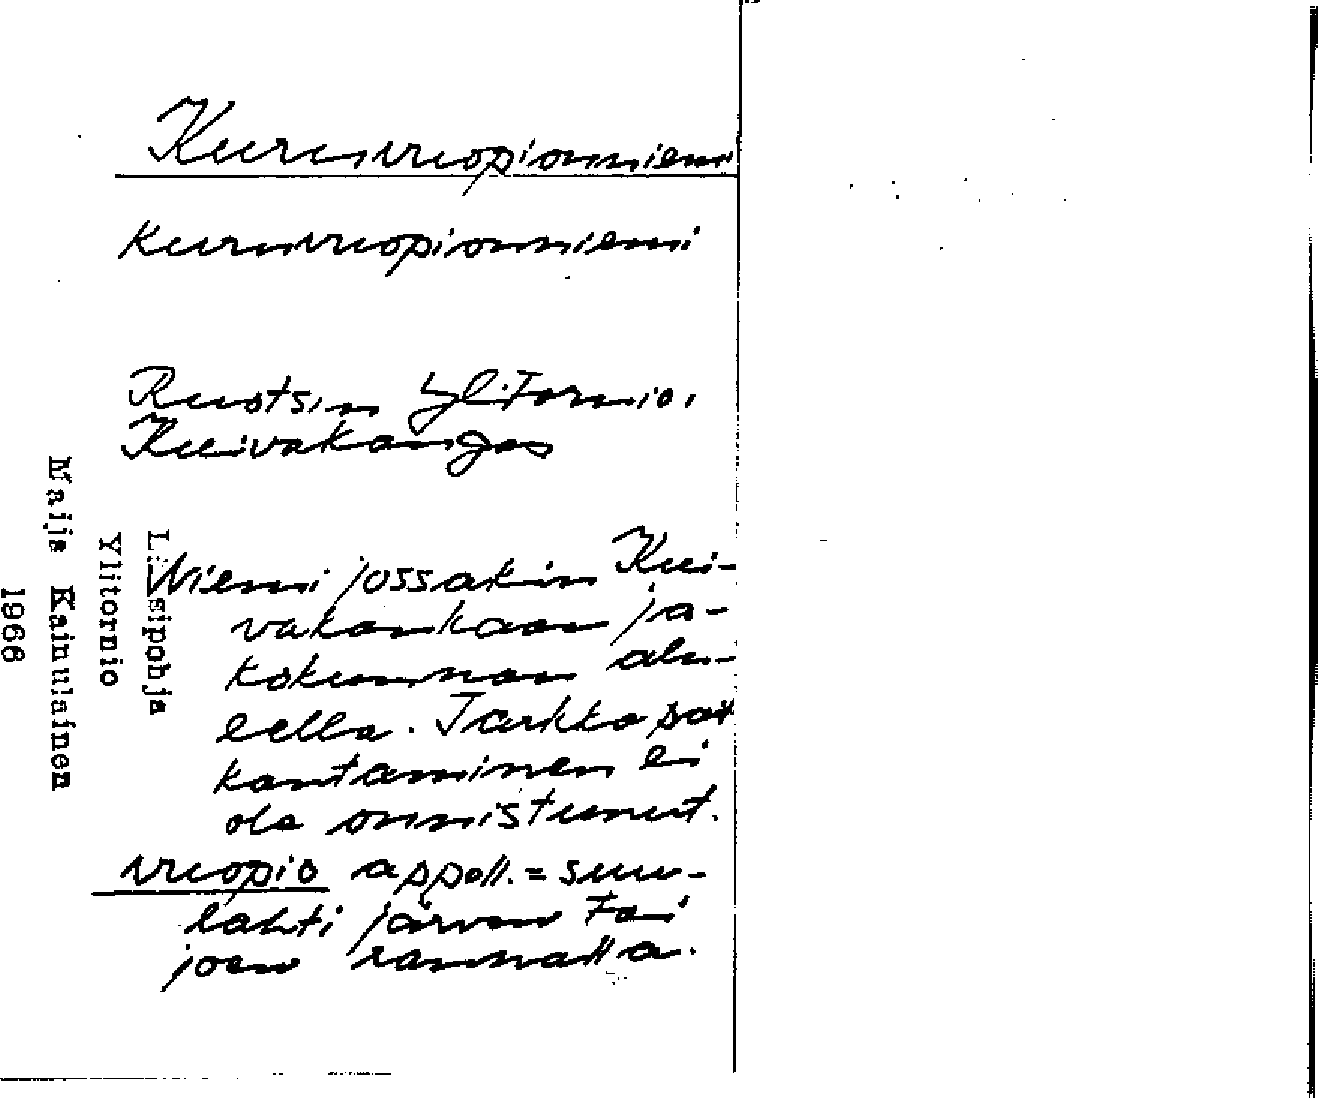 Kuruvuopionniemi
kuruvuopionniemi
Ruotsin Ylitornio,
Kuivakangas
Niemi jossakin Kui-
vakankaan ja-
kokunnan alu-
eella. Tarkka pai
kantaminen ei
ole onnistunut.
vuopio appell. = suu-
lahti järven tai
joen rannalla.
Länsipohja
Ylitornio
Maija Kainulainen
1966